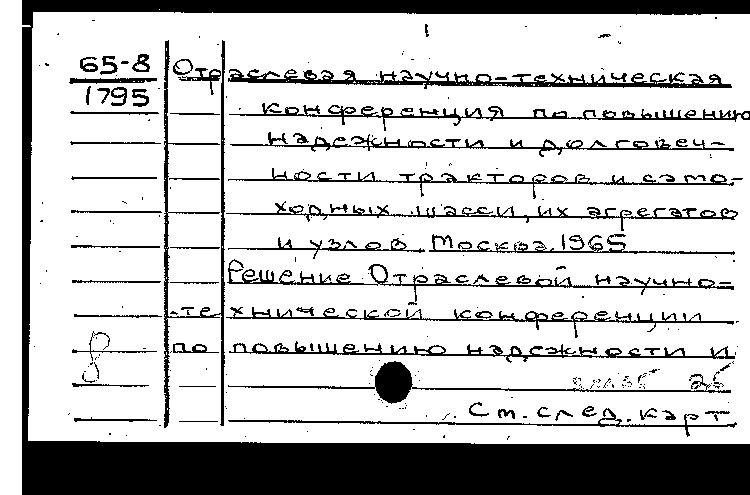 1
65-8 Отраслевая научно-техническая
1795 конференция по повышению
надежности и долговеч-
ности тракторов и само-
ходных шасси, их агрегатов
и узлов. Москва. 1965
Решение Отраслевой научно-
-технической конференции
8 по повышению надежности и
25
См. след. карт.